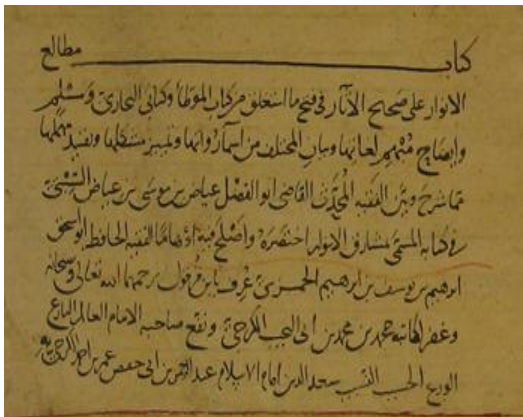 كتاب مطالع
الانوار على صحيح الآثار في فتح ما استغلق من كتاب الموطأ وكتابي البخاري ومسلم
وايضاح مبهم لغاتها وبيان المختلف من اسماء رواتها وتمييز مشكلها وتقييد مهملها
مما شرح وبين الفقيه المحدث القاضي ابو الفضل عياض بن موسى بن عياض السبتي
في كتابه المسمى بمشارق الانوار اختصره واصلح فيه اوهاما الفقيه الحافظ ابو اسحق
ابرهيم بن يوسف بن ابرهيم الحمزي عرف بابن قرقول رحمهما الله تعالى وسبحانه
وغفر لكاتبه محمد بن محمد بن ابي الكرجي ونفع صاحبه الامام العالم البارع
الورع الحسيب النسيب سعد الدين امام الاسلام عبد بن ابي حفص عمر بن